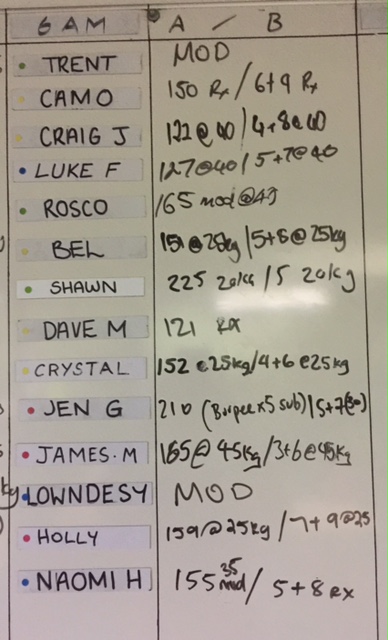 6 AM A / B
TRENT MOD
CAMO 150 Rx / 6+9 Rx
CRAIG J 122@40 / 4+8@40
LUKE F 127@40 / 5+7@40
ROSCO 165 mod @43
BEL 151@25kg / 5+6@25kg
SHAWN 225 20kg / 5 20kg
DAVE M 121 RX
CRYSTAL 152 @25kg/4+6 @25kg
JEN G 210 (Burpee x5 sub) / 5+7(30)
JAMES.M 165@45kg / 3+6@45kg
LOWNDESY MOD
HOLLY 159@25kg / 7+9@25
NAOMI H 155 35 mod / 5+8 RX